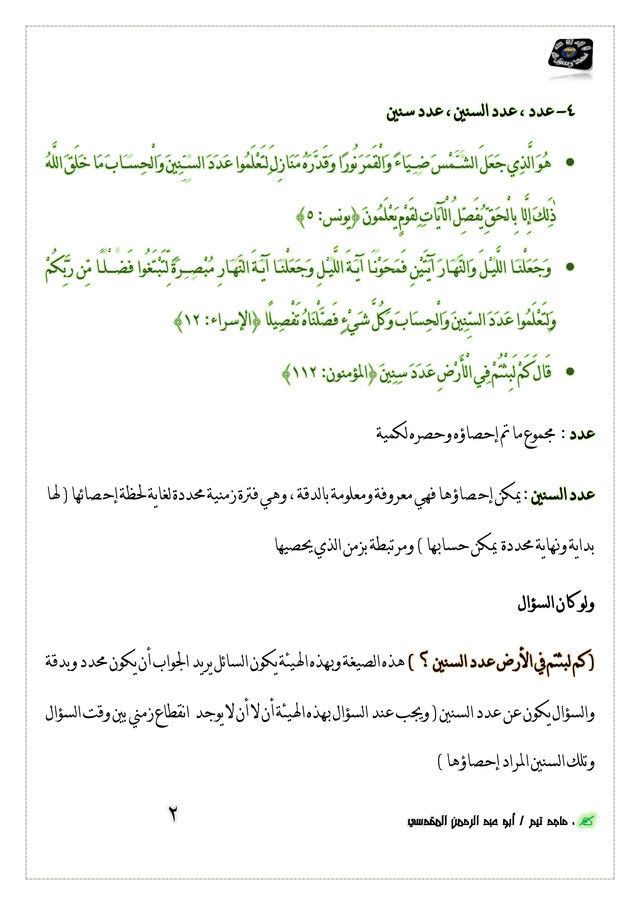 ٤- عدد ، عدد السنين ، عدد سنين
• هُوَ الَّذِي جَعَلَ الشَّمْسَ ضِيَاءً وَالْقَمَرَ نُورًا وَقَدَّرَهُ مَنَازِلَ لِتَعْلَمُوا عَدَدَ السِّنِينَ وَالْحِسَابَ مَا خَلَقَ اللَّهُ
ذَٰلِكَ إِلَّا بِالْحَقِّ يُفَصِّلُ الْآيَاتِ لِقَوْمٍ يَعْلَمُونَ ﴿يونس: ٥﴾
• وَجَعَلْنَا اللَّيْلَ وَالنَّهَارَ آيَتَيْنِ فَمَحَوْنَا آيَةَ اللَّيْلِ وَجَعَلْنَا آيَةَ النَّهَارِ مُبْصِرَةً لِّتَبْتَغُوا فَضْلًا مِّن رَّبِّكُمْ
وَلِتَعْلَمُوا عَدَدَ السِّنِينَ وَالْحِسَابَ وَكُلَّ شَيْءٍ فَصَّلْنَاهُ تَفْصِيلًا ﴿الإسراء: ١٢﴾
• قَالَ كَمْ لَبِثْتُمْ فِي الْأَرْضِ عَدَدَ سِنِينَ ﴿المؤمنون: ١١٢﴾
عدد : مجموع ما تم إحصاؤه وحصره لكمية
عدد السنين : يمكن إحصاؤها فهي معروفة ومعلومة بالدقة ، وهي فترة زمنية محددة لغاية لحظة إحصائها ( لها
بداية ونهاية محددة يمكن حسابها ) ومرتبطة بزمن الذي يحصيها
ولو كان السؤال
(كم لبثتم في الأرض عدد السنين ؟ ) هذه الصيغة وبهذه الهيئة يكون السائل يريد الجواب أن يكون محدد وبدقة
والسؤال يكون عن عدد السنين ( ويجب عند السؤال بهذه الهيئة أن لا أن لا يوجد انقطاع زمني بين وقت السؤال
وتلك السنين المراد إحصاؤها )
، ماجد تيم / أبو عبد الرحمن المقدسي ٢